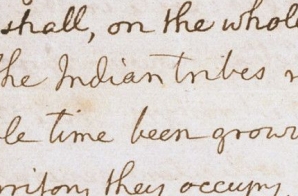 shall, on the whol
the Indian tribes
le time been grow
rritory they occupy